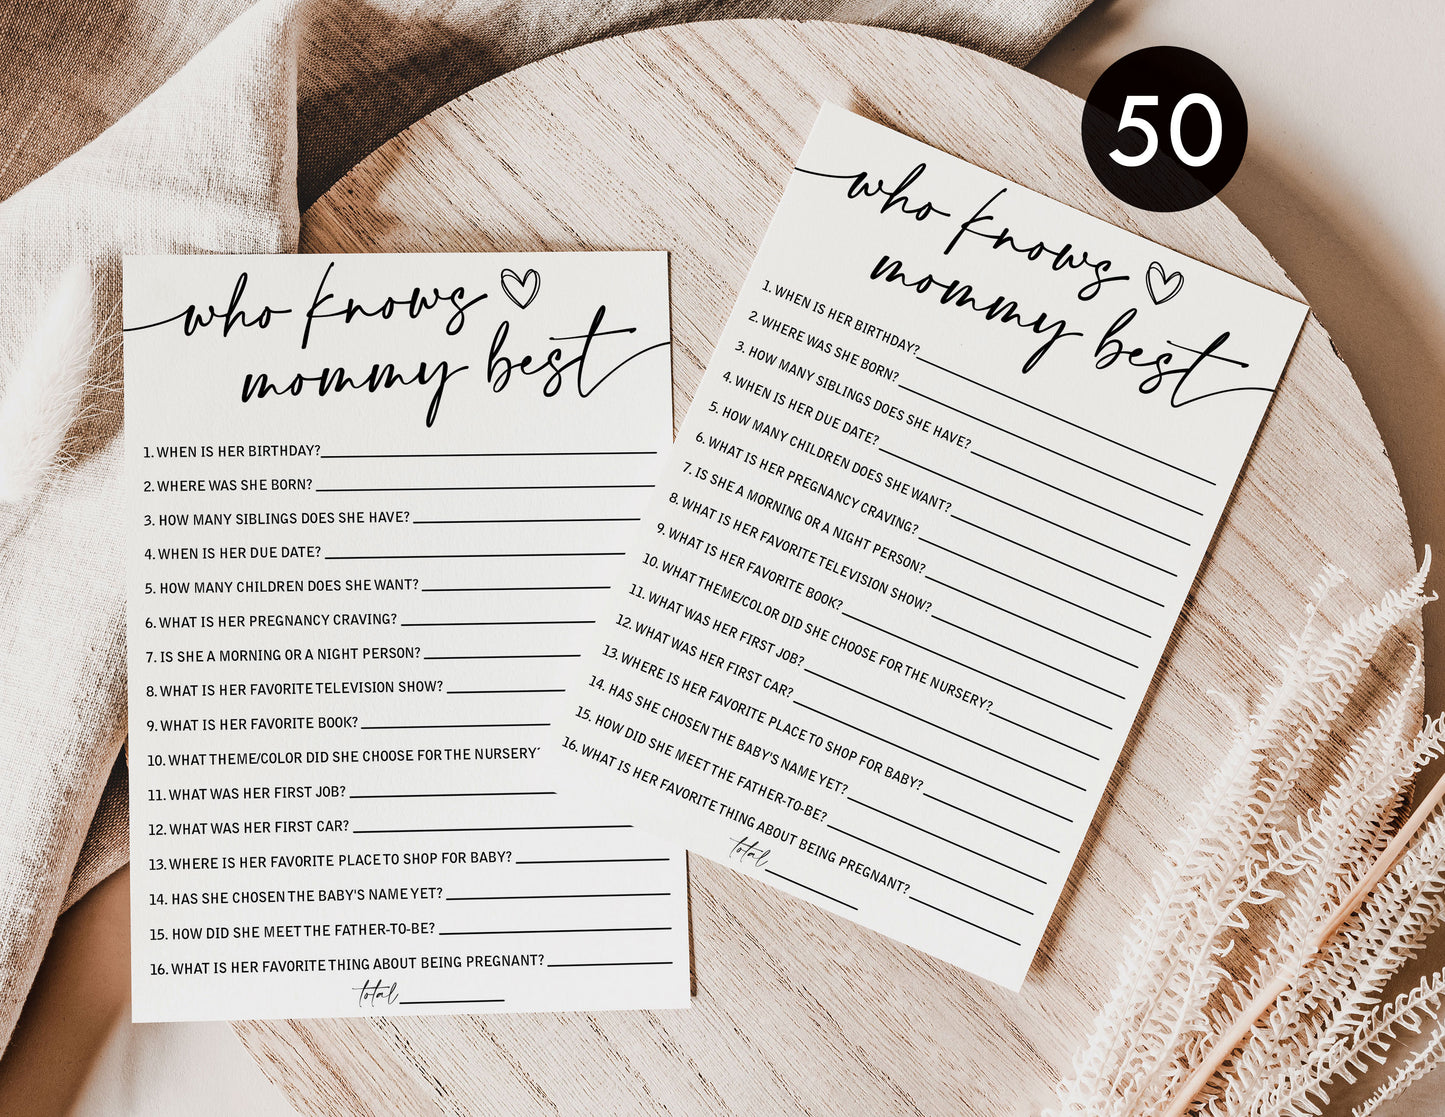 who knows
mommy best
1. WHEN IS HER BIRTHDAY?
2. WHERE WAS SHE BORN?
3. HOW MANY SIBLINGS DOES SHE HAVE?
4. WHEN IS HER DUE DATE?
5. HOW MANY CHILDREN DOES SHE WANT?
6. WHAT IS HER PREGNANCY CRAVING?
7. IS SHE A MORNING OR A NIGHT PERSON?
8. WHAT IS HER FAVORITE TELEVISION SHOW?
9. WHAT IS HER FAVORITE BOOK?
10. WHAT THEME/COLOR DID SHE CHOOSE FOR THE NURSERY
11. WHAT WAS HER FIRST JOB?
12. WHAT WAS HER FIRST CAR?
13. WHERE IS HER FAVORITE PLACE TO SHOP FOR BABY?
14. HAS SHE CHOSEN THE BABY'S NAME YET?
15. HOW DID SHE MEET THE FATHER-TO-BE?
16. WHAT IS HER FAVORITE THING ABOUT BEING PREGNANT?
total
50
who knows
mommy best
1. WHEN IS HER BIRTHDAY?
2. WHERE WAS SHE BORN?
3. HOW MANY SIBLINGS DOES SHE HAVE?
4. WHEN IS HER DUE DATE?
5. HOW MANY CHILDREN DOES SHE WANT?
6. WHAT IS HER PREGNANCY CRAVING?
7. IS SHE A MORNING OR A NIGHT PERSON?
8. WHAT IS HER FAVORITE TELEVISION SHOW?
9. WHAT IS HER FAVORITE BOOK?
10. WHAT THEME/COLOR DID SHE CHOOSE FOR THE NURSERY?
11. WHAT WAS HER FIRST JOB?
12. WHAT WAS HER FIRST CAR?
13. WHERE IS HER FAVORITE PLACE TO SHOP FOR BABY?
14. HAS SHE CHOSEN THE BABY'S NAME YET?
15. HOW DID SHE MEET THE FATHER-TO-BE?
16. WHAT IS HER FAVORITE THING ABOUT BEING PREGNANT?
total